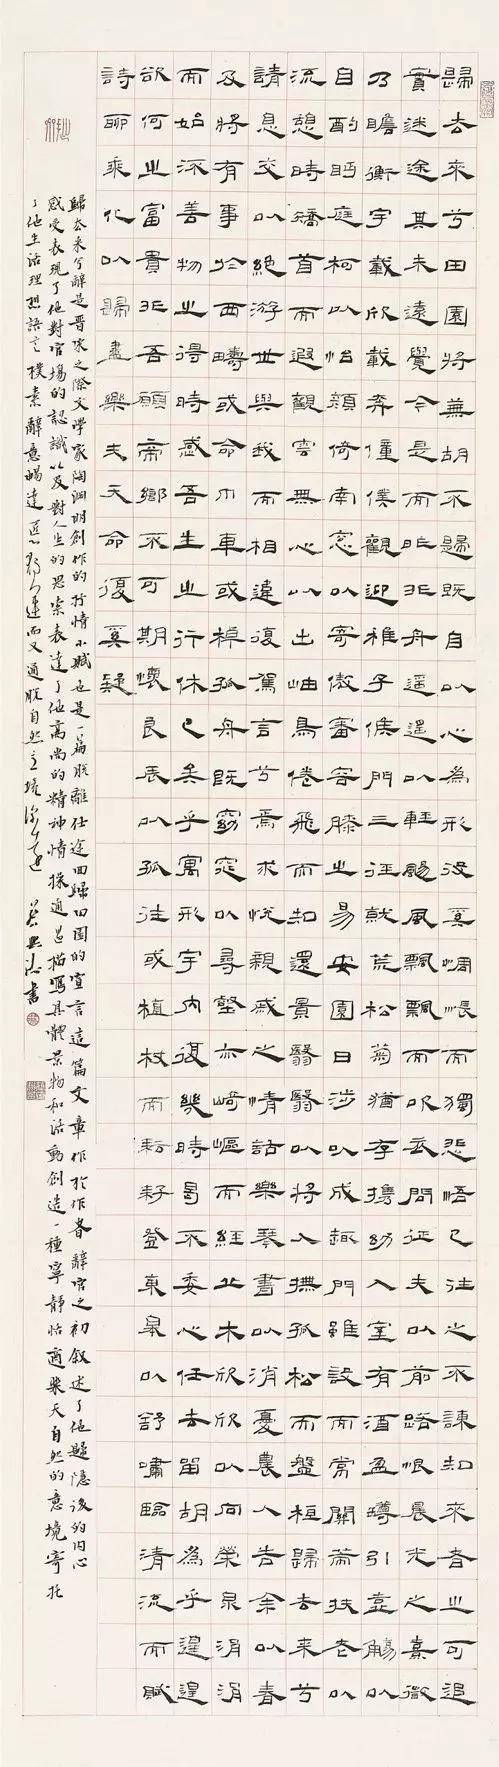 歸去來兮田園將蕪胡不歸既自以心為形役奚惆悵而獨悲悟已往之不諫知來者之可追
實迷途其未遠覺今是而昨非舟遙遙以輕颺風飄飄而吹衣問征夫以前路恨晨光之熹微
乃瞻衡宇載欣載奔僮僕歡迎稚子候門三徑就荒松菊猶存攜幼入室有酒盈罇引壺觴以
自酌眄庭柯以怡顏倚南窗以寄傲審容膝之易安園日涉以成趣門雖設而常關策扶老以
流憩時矯首而遐觀雲無心以出岫鳥倦飛而知還景翳翳以將入撫孤松而盤桓歸去來兮
請息交以絕游世與我而相違復駕言兮焉求悅親戚之情話樂琴書以消憂農人告余以春
及將有事於西疇或命巾車或棹孤舟既窈窕以尋壑亦崎嶇而經丘木欣欣以向榮泉涓涓
而始流善物之得時感吾生之行休已矣乎寓形宇內復幾時曷不委心任去留胡為乎遑遑
欲何之富貴非吾願帝鄉不可期懷良辰以孤往或植杖而耘耔登東皋以舒嘯臨清流而賦
詩聊乘化以歸盡樂夫天命復奚疑
歸去來兮辭是晉宋之際文學家陶淵明創作的抒情小賦也是一篇脫離仕途回歸田園的宣言這篇文章作於作者辭官之初敘述了他歸隱後的內心
感受表現了他對官場的認識以及對人生的思索表達了他高尚的精神情操通過描寫具體景物和活動創造一種寧靜恬適樂天自然的意境寄托
了他生活理想語言樸素辭意暢達匠心獨運而又通脫自然之境 書